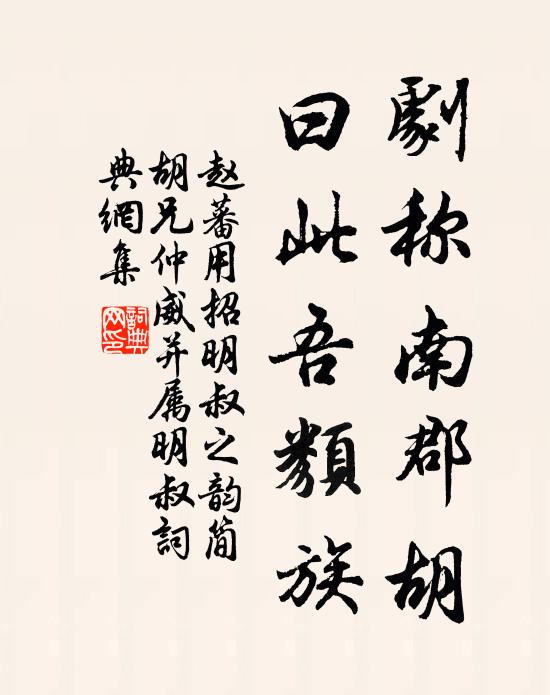 劇称南郡胡
曰此吾類族
赵蕃用招明叔之韵简
胡兄仲威并属明叔詞
典網集
詞典
网印